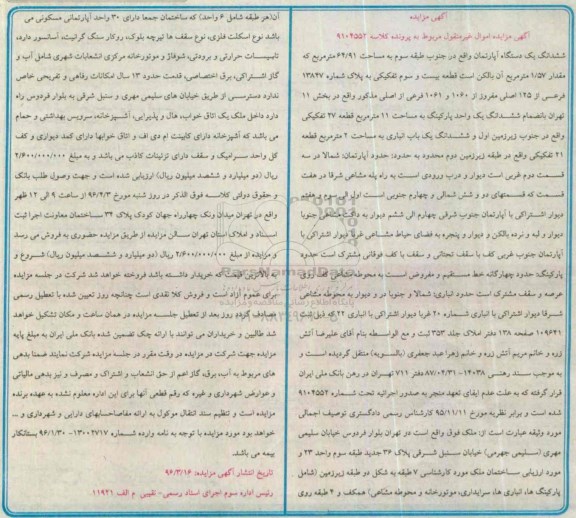 آگهی مزایده
آگهی مزایده اموال غیرمنقول مربوط به پرونده کلاسه ۹۱۰۴۵۵۲
ششدانگ یک دستگاه آپارتمان واقع در جنوب طبقه سوم به مساحت ۶۴/۹۱ مترمربع که
مقدار ۱/۵۷ مترمربع آن بالکن است قطعه بیست و سوم تفکیکی به پلاک شماره ۱۳۸۴۷
فرعی از ۱۲۵ اصلی مفروز از ۱۰۶۰ و ۱۰۶۱ فرعی از اصلی مذکور واقع در بخش ۱۱
تهران بانضمام ششدانگ یک واحد پارکینگ به مساحت ۱۱ مترمربع قطعه ۲۷ تفکیکی
واقع در جنوب زیرزمین اول و ششدانگ یک باب انباری به مساحت ۲ مترمربع قطعه
۲۱ تفکیکی واقع در طبقه زیرزمین دوم محدود به حدود: حدود آپارتمان: شمالا در سه
قسمت دوم غربی است دیوار و درب ورودی است به راه پله مشاعی شرقا در هفت
قسمت که قسمتهای دو و شش شمالی و چهارم جنوبی است اول الی سوم و هفتم
دیوار اشتراکی با آپارتمان جنوب شرقی چهارم الی ششم دیوار به
دیوار و لبه و نرده بالکن و دیوار و پنجره به فضای حیاط مشاعی غربا دیوار اشتراکی با
آپارتمان جنوب غربی کف با سقف تحتانی و سقف با کف فوقانی مشترک است حدود
پارکینگ: حدود چهارگانه خط مستقیم و مفروض است به محوطه مشاعی کف روی
عرصه و سقف مشترک است حدود انباری: شمالا و جنوبا در و دیوار به محوطه مشاعی
شرقا دیوار اشتراکی با انباری شماره ۲۰ غربا دیوار اشتراکی با انباری ۲۲ که ذیل ثبت
۱۰۹۶۴۱ صفحه ۱۳۸ دفتر املاک جلد ۳۵۳ ثبت و مع الواسطه بنام آقای علیرضا آتش
زره و خانم مریم آتش زره و خانم زهرا عبد جعفری (بالسویه) منتقل گردیده است و
به موجب سند رهنی ۱۴۰۳۸-۸۷/۰۴/۳۱ دفتر ۷۱۱ تهران در رهن بانک ملی ایران
قرار گرفته که به علت عدم ایفای تعهد منجر به صدور اجرائیه تحت شماره ۹۱۰۴۵۵۲
شده است و برابر نظریه مورخ ۹۵/۱۱/۱۱ کارشناس رسمی دادگستری توصیف اجمالی
مورد وثیقه عبارت است از: ملک فوق واقع است در تهران بلوار فردوس خیابان سلیمی
مهری (سلیمی جهرمی) خیابان سنبل شرقی پلاک ۳۶ جدید طبقه سوم واحد ۲۳ و
مورد ارزیابی ساختمان ملک مورد کارشناسی ۷ طبقه به شکل دو طبقه زیرزمین (شامل
پارکینگ ها، انباری ها، سرایداری، موتورخانه و محوطه مشاعی) همکف و ۴ طبقه روی
آن(هر طبقه شامل ۶ واحد) که ساختمان جمعا دارای ۳۰ واحد آپارتمانی مسکونی می
باشد نوع اسکلت فلزی، نوع سقف ها تیرچه بلوک، روکار سنگ گرانیت، آسانسور دارد،
تاسیسات حرارتی و برودتی، شوفاژ و موتورخانه مرکزی انشعابات شهری شامل آب و
گاز اشتراکی، برق اختصاصی، قدمت حدود ۱۳ سال امکانات رفاهی و تفریحی خاص
ندارد دسترسی از طریق خیابان های سلیمی مهری و سنبل شرقی به بلوار فردوس راه
دارد داخل ملک یک اتاق خواب، هال و پذیرایی، آشپزخانه، سرویس بهداشتی و حمام
می باشد که آشپزخانه دارای کابینت ام دی اف و اتاق خوابها دارای کمد دیواری و کف
کل واحد سرامیک و سقف دارای تزئینات کاذب می باشد و به مبلغ ۲/۶۰۰/۰۰۰/۰۰۰
ریال (دو میلیارد و ششصد میلیون ریال) ارزیابی شده است و جهت وصول طلب بانک
و حقوق دولتی کلاسه فوق الذکر در روز شنبه مورخ ۹۶/۴/۳ از ساعت ۹ الی ۱۲ ظهر
واقع در تهران میدان ونک چهارراه جهان کودک پلاک ۳۴ ساختمان معاونت اجرا ثبت
اسناد و املاک استان تهران سالن مزایده از طریق مزایده حضوری به فروش می رسد
و مزایده از مبلغ ۲/۶۰۰/۰۰۰/۰۰۰ ریال (دو میلیارد و ششصد میلیون ریال) شروع و
به بالاترین قیمت که خریدار داشته باشد فروخته خواهد شد شرکت در جلسه مزایده
برای عموم آزاد است و فروش کلا نقدی است چنانچه روز تعیین شده با تعطیل رسمی
تصادف کرده روز بعد از تعطیل جلسه مزایده در همان ساعت و مکان تشکیل خواهد
شد طالبین و خریداران می توانند با ارائه چک تضمین شده بانک ملی ایران به مبلغ پایه
مزایده جهت شرکت در مزایده در وقت مقرر در جلسه مزایده شرکت نمایند ضمنا بدهی
های مربوط به آب، برق، گاز اعم از حق انشعاب و اشتراک و مصرف و نیز بدهی مالیاتی
و عوارض شهرداری و غیره که رقم قطعی آنها برای این اداره معلوم نشده به عهده برنده
مزایده است و تنظیم سند انتقال موکول به ارائه مفاصاحسابهای دارایی و شهرداری و ...
خواهد بود مورد مزایده با توجه به نامه وارده شماره ۱۳۰۰۲۷۱۷- ۹۶/۱/۳۰ بستانکار
بیمه می باشد.
تاریخ انتشار آگهی مزایده: ۹۶/۳/۱۶
رئیس اداره سوم اجرای اسناد رسمی- نقیبی م الف ۱۱۹۲۱